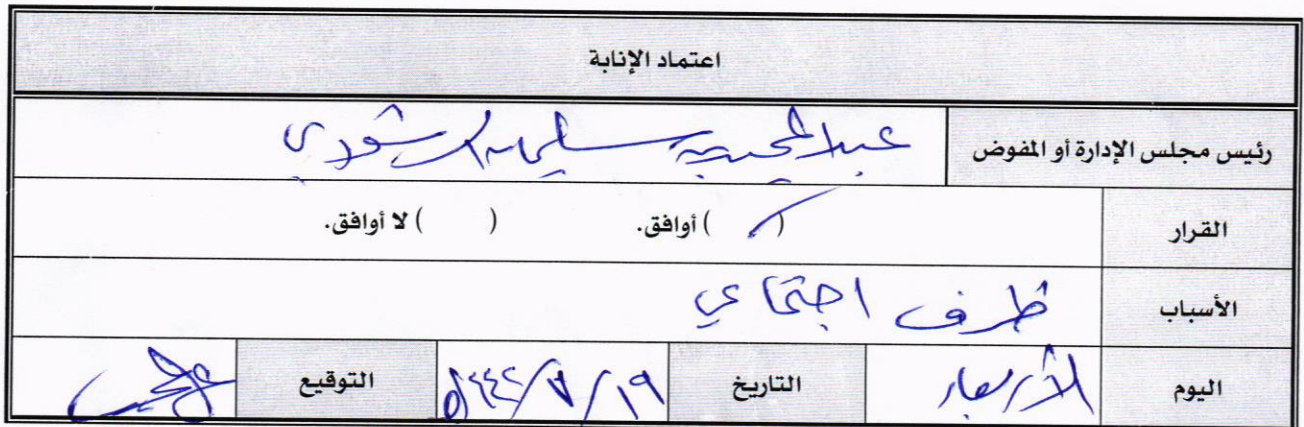 اعتماد الإنابة
رئيس مجلس الإدارة أو المفوض عبدالمحسن سليمان الرشودي
القرار ( ✓ ) أوافق. ( ) لا أوافق.
الأسباب ظرف اجتماعي
اليوم الأربعاء التاريخ ١٩/ /١٤٤٤هـ التوقيع